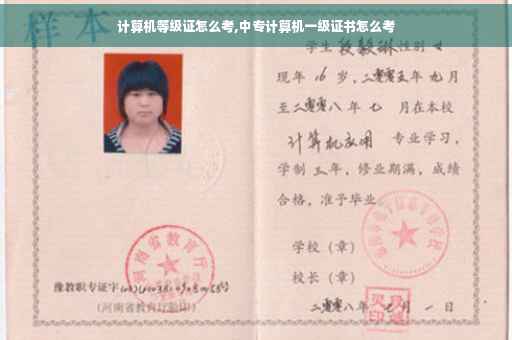 计算机等级证怎么考,中专计算机一级证书怎么考
样本
学生段毅琳性别女
现年16岁,二零零五年九月
至二零零八年七月在本校
计算机应用 专业学习,
学制三年,修业期满,成绩
合格,准予毕业
学校(章)
校长(章)
二零零八年七月一日
河南省教育厅
豫教职专证字
(河南省教育厅验印)